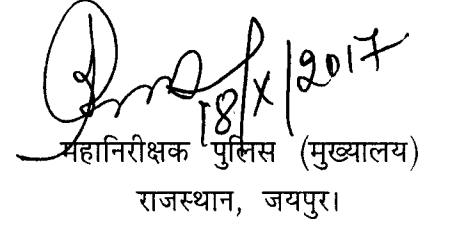 18/X/2017
महानिरीक्षक पुलिस (मुख्यालय)
राजस्थान, जयपुर।